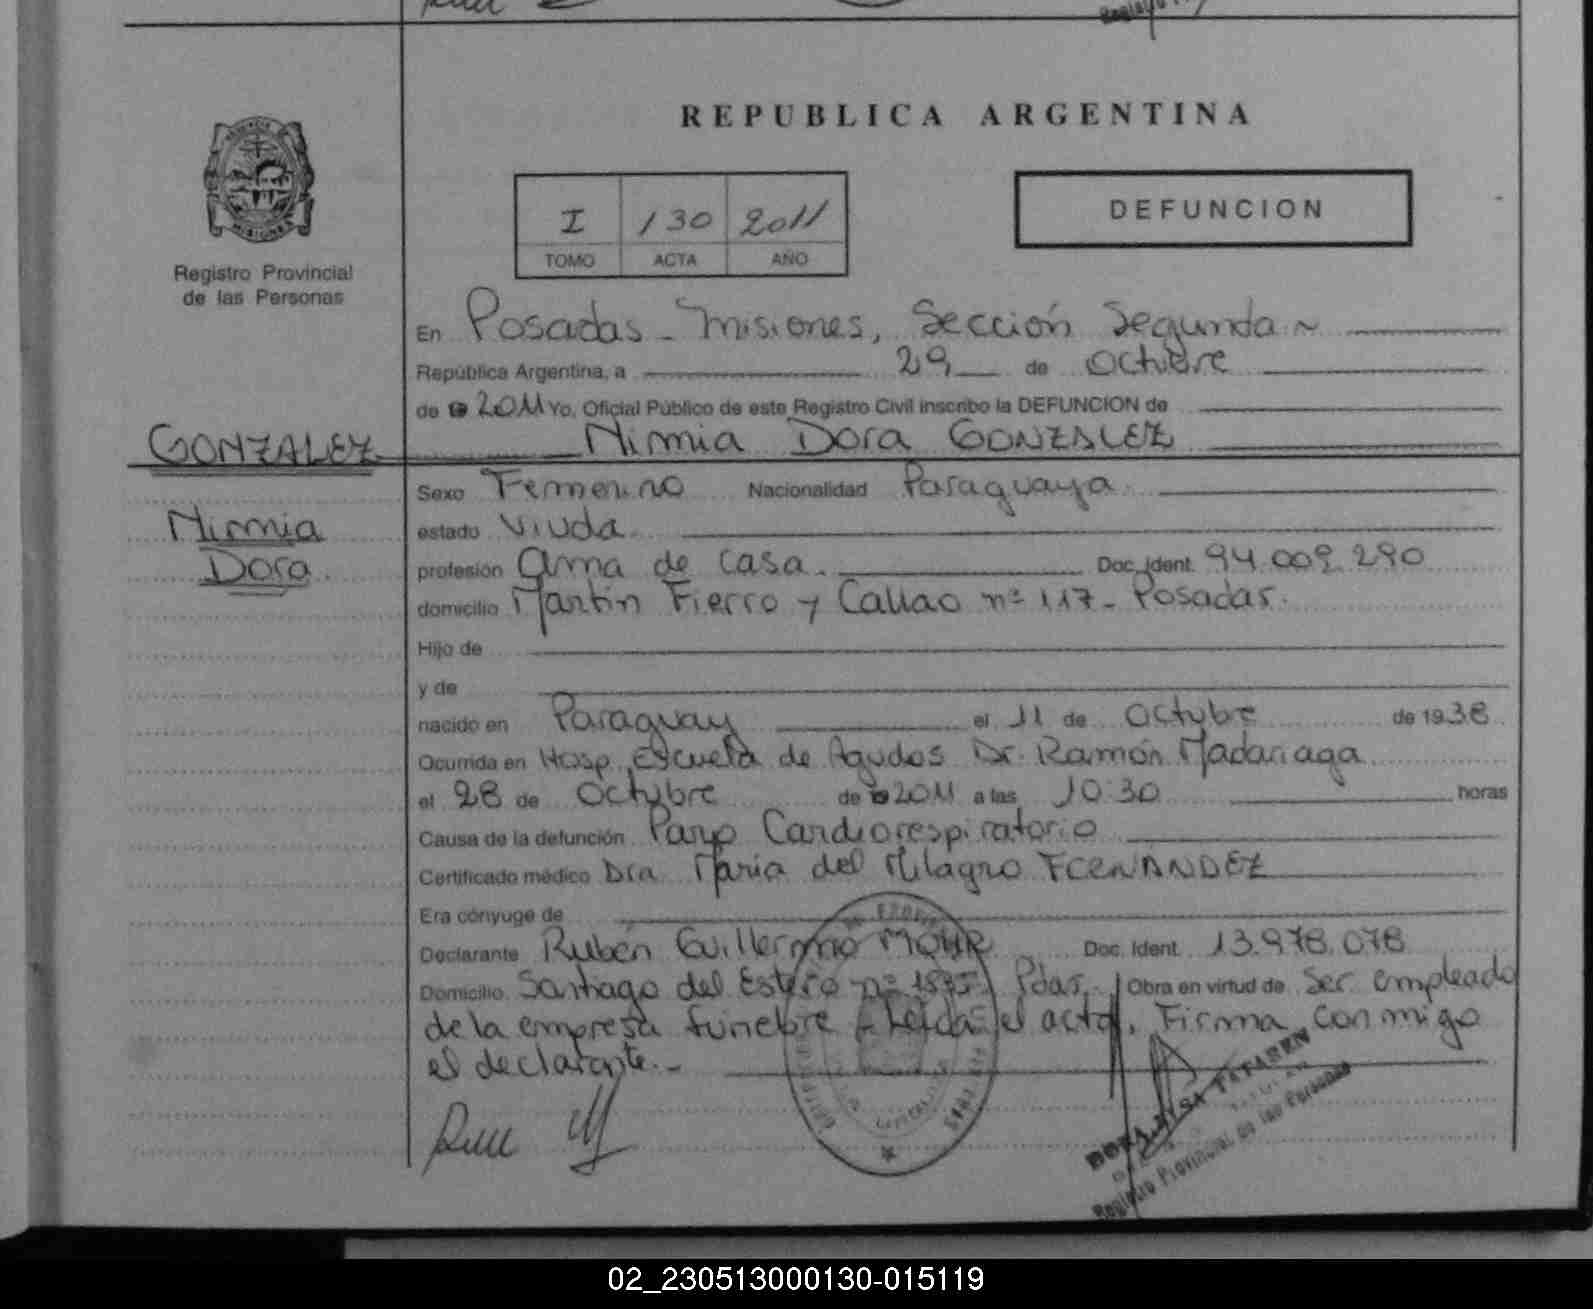 REPUBLICA ARGENTINA
MISIONES
Registro Provincial
de las Personas
I 130 2011
TOMO ACTA AÑO
DEFUNCION
En Posadas - Misiones, Sección Segunda
República Argentina, a 29 de Octubre
de 2011 Yo, Oficial Público de este Registro Civil inscribo la DEFUNCION de
GONZALEZ
Nimia Dora GONZALEZ
Nimia
Dora
Sexo Femenino Nacionalidad Paraguaya
estado Viuda
profesión ama de casa. Doc. Ident. 94.009.290
domicilio Martin Fierro y Callao nº 117 - Posadas.
Hijo de
y de
nacido en Paraguay el 11 de Octubre de 1938
Ocurrida en Hosp. Escuela de Agudos Dr. Ramón Madariaga
el 28 de Octubre de 2011 a las 10:30 horas
Causa de la defunción Paro Cardiorespiratorio
Certificado médico Dra. Maria del Milagro FERNANDEZ
Era cónyuge de
Declarante Rubén Guillermo Doc. Ident. 13.978.078
Domicilio Santiago del Estero nº Pdas. Obra en virtud de Ser empleado
de la empresa funebre - Leida el acta, Firma conmigo
el declarante.-
Registro Provincial de las Personas
02_230513000130-015119